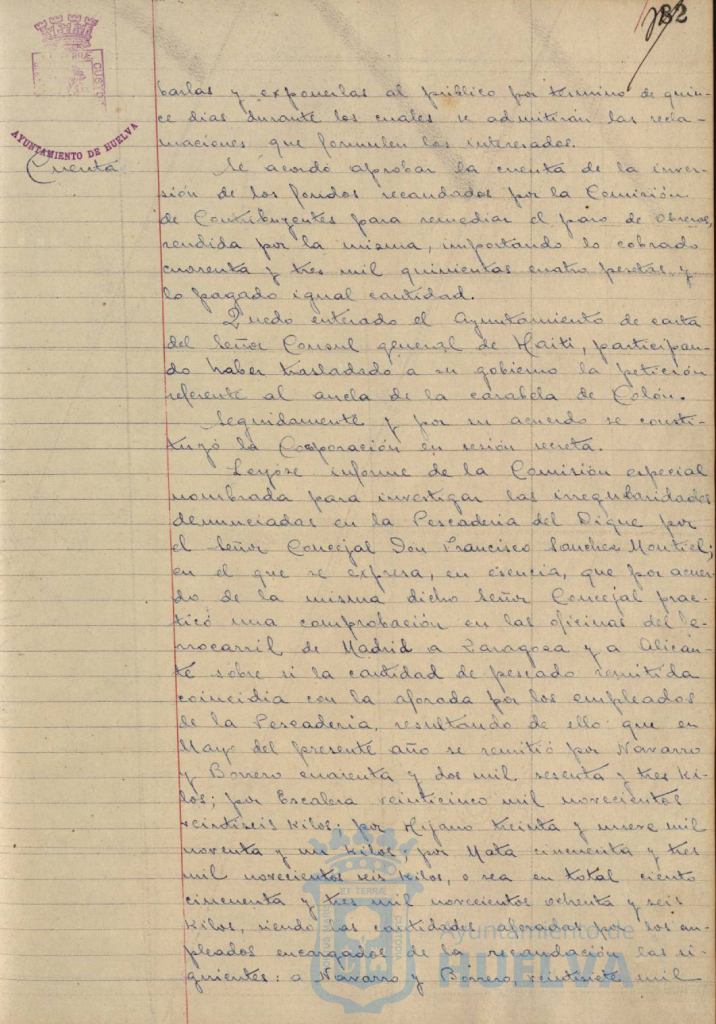 82
AYUNTAMIENTO DE HUELVA
Cuenta
barlas y exponerlas al público por termino de quin-
ce dias durante los cuales se admitirán las recla-
maciones que formulen los interesados.
Se acordó aprobar la cuenta de la inver-
sión de los fondos recaudados por la Comisión
de Contribuyentes para remediar el paro de Obreros,
rendida por la misma, importando lo cobrado
cuarenta y tres mil quinientas cuatro pesetas y
lo pagado igual cantidad.
Quedo enterado el Ayuntamiento de carta
del Señor Consul general de Haiti, participan-
do haber trasladado a su gobierno la petición
referente al ancla de la carabela de Colón.
Seguidamente y por su acuerdo se consti-
tuyó la Corporación en sesión secreta.
Leyóse informe de la Comisión especial
nombrada para investigar las irregularidades
denunciadas en la Pescaderia del Dique por
el Señor Concejal Don Francisco Sanchez Montiel;
en el que se expresa, en esencia, que por acuer-
do de la misma dicho Señor Concejal prac-
ticó una comprobación en las oficinas del fe-
rrocarril de Madrid a Zaragoza y a Alican-
te sobre si la cantidad de pescado remitida
coincidia con la aforada por los empleados
de la Pescaderia, resultando de ello: que en
Mayo del presente año se remitió por Navarro
y Borrero cuarenta y dos mil sesenta y tres ki-
los; por Escalera veinticinco mil novecientos
veintiseis kilos; por Hijano treinta y nueve mil
noventa y un kilos; por Mata cincuenta y tres
mil novecientos seis kilos, o sea en total ciento
cincuenta y tres mil novecientos ochenta y seis
kilos, siendo las cantidades aforadas por los em-
pleados encargados de la recaudación las si-
guientes: a Navarro y Borrero, veintisiete mil
Ayuntamiento de
HUELVA